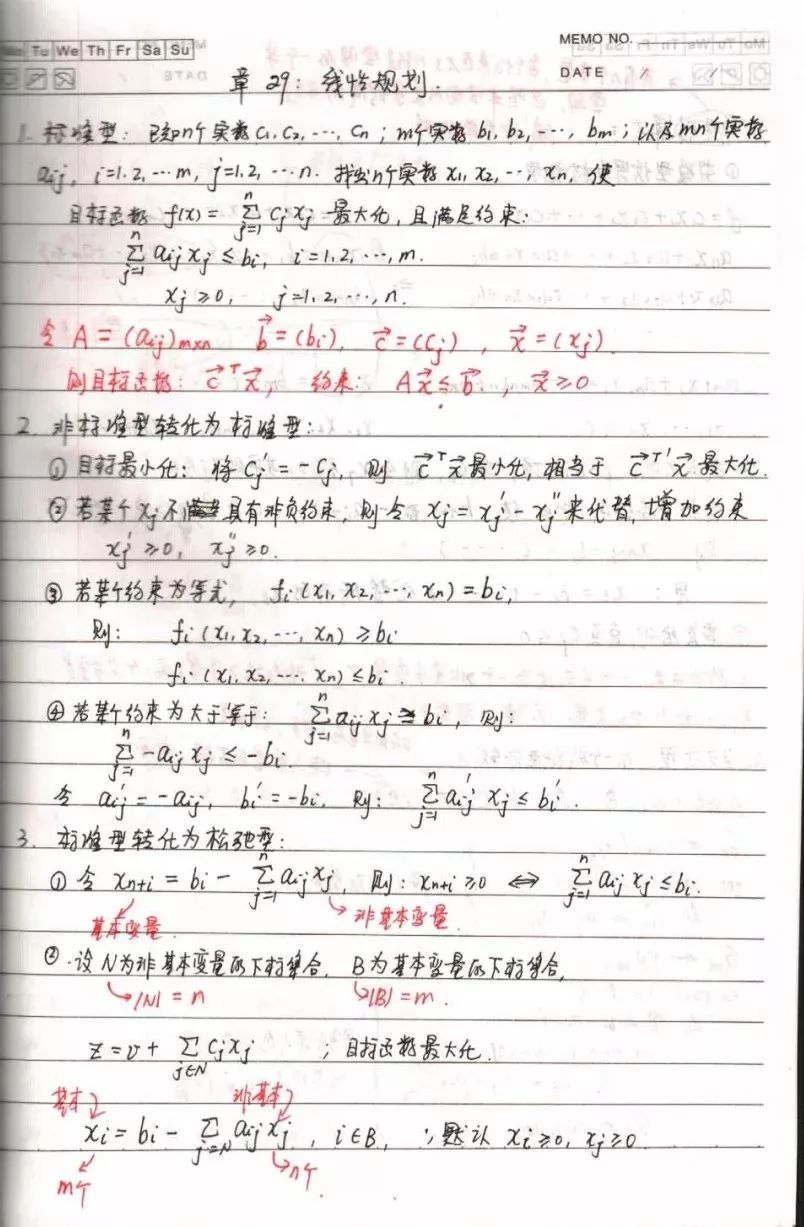 MEMO NO.
Tu We Th Fr Sa Su
DATE / /
章 29: 线性规划.
1. 标准型: 已知n个实数 c₁, c₂, ⋯, cₙ ; m个实数 b₁, b₂, ⋯, bₘ ; 以及mn个实数
aᵢⱼ, i=1.2, ⋯ m, j=1.2, ⋯ n. 找出n个实数 x₁, x₂, ⋯, xₙ, 使
目标函数 f(x) = Σ_{j=1}^{n} cⱼ xⱼ 最大化, 且满足约束:
Σ_{j=1}^{n} aᵢⱼ xⱼ ≤ bᵢ, i=1.2, ⋯, m.
xⱼ ≥ 0, j=1.2, ⋯, n.
令 A = (aᵢⱼ)_{m×n} b⃗ = (bᵢ), c⃗ = (cⱼ) , x⃗ = (xⱼ)
则目标函数: c⃗ᵀx⃗, 约束: Ax⃗ ≤ b⃗, x⃗ ≥ 0
2. 非标准型转化为标准型:
① 目标最小化: 将 cⱼ' = -cⱼ, 则 c⃗ᵀx⃗ 最小化, 相当于 c⃗ᵀ'x⃗ 最大化.
② 若某个 xⱼ 不具有非负约束, 则令 xⱼ = xⱼ' - xⱼ'' 来代替, 增加约束
xⱼ' ≥ 0, xⱼ'' ≥ 0.
③ 若某个约束为等式, fᵢ (x₁, x₂, ⋯, xₙ) = bᵢ,
则: fᵢ (x₁, x₂, ⋯, xₙ) ≥ bᵢ
fᵢ (x₁, x₂, ⋯, xₙ) ≤ bᵢ.
④ 若某个约束为大于等于: Σ_{j=1}^{n} aᵢⱼ xⱼ ≥ bᵢ, 则:
Σ_{j=1}^{n} -aᵢⱼ xⱼ ≤ -bᵢ
令 aᵢⱼ' = -aᵢⱼ, bᵢ' = -bᵢ, 则: Σ_{j=1}^{n} aᵢⱼ' xⱼ ≤ bᵢ'.
3. 标准型转化为松弛型:
① 令 xₙ₊ᵢ = bᵢ - Σ_{j=1}^{n} aᵢⱼ xⱼ, 则: xₙ₊ᵢ ≥ 0 ⇔ Σ_{j=1}^{n} aᵢⱼ xⱼ ≤ bᵢ.
基本变量. 非基本变量.
② 设 N 为非基本变量的下标集合, B 为基本变量的下标集合,
|N| = n |B| = m.
z = v + Σ_{j∈N} cⱼ xⱼ ; 目标函数最大化.
基本 非基本
xᵢ = bᵢ - Σ_{j=N} aᵢⱼ xⱼ, i∈B, ; 默认 xᵢ ≥ 0, xⱼ ≥ 0
m个 n个.